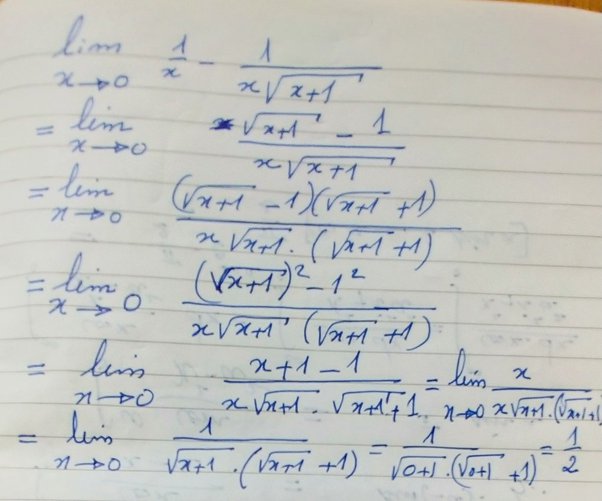 lim x→0 1/x - 1/(x√(x+1))
= lim x→0 (√(x+1) - 1)/(x√(x+1))
= lim x→0 ((√(x+1) - 1)(√(x+1) + 1))/(x√(x+1) . (√(x+1) + 1))
= lim x→0 ((√(x+1))² - 1²)/(x√(x+1) (√(x+1) + 1))
= lim x→0 (x+1-1)/(x√(x+1) . √(x+1) + 1) = lim x→0 x/(x√(x+1) . (√(x+1) + 1))
= lim x→0 1/(√(x+1) . (√(x+1) + 1)) = 1/(√(0+1) . (√(0+1) + 1)) = 1/2